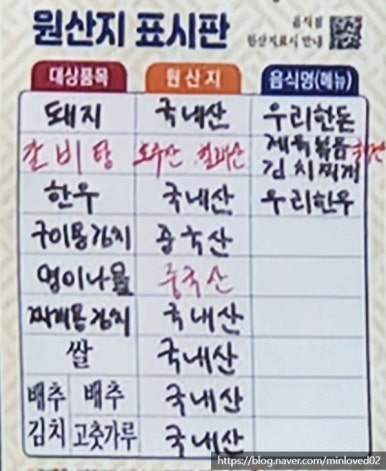 원산지 표시판
음식점
원산지표시 안내
대상품목 원산지 음식명(메뉴)
돼지 국내산 우리한돈
갈비탕 호주산
제육볶음
김치찌개
한우 국내산 우리한우
구이용김치 중국산
명이나물 중국산
찌개용김치 국내산
쌀 국내산
배추 배추 국내산
김치 고춧가루 국내산
https://blog.naver.com/minloved02